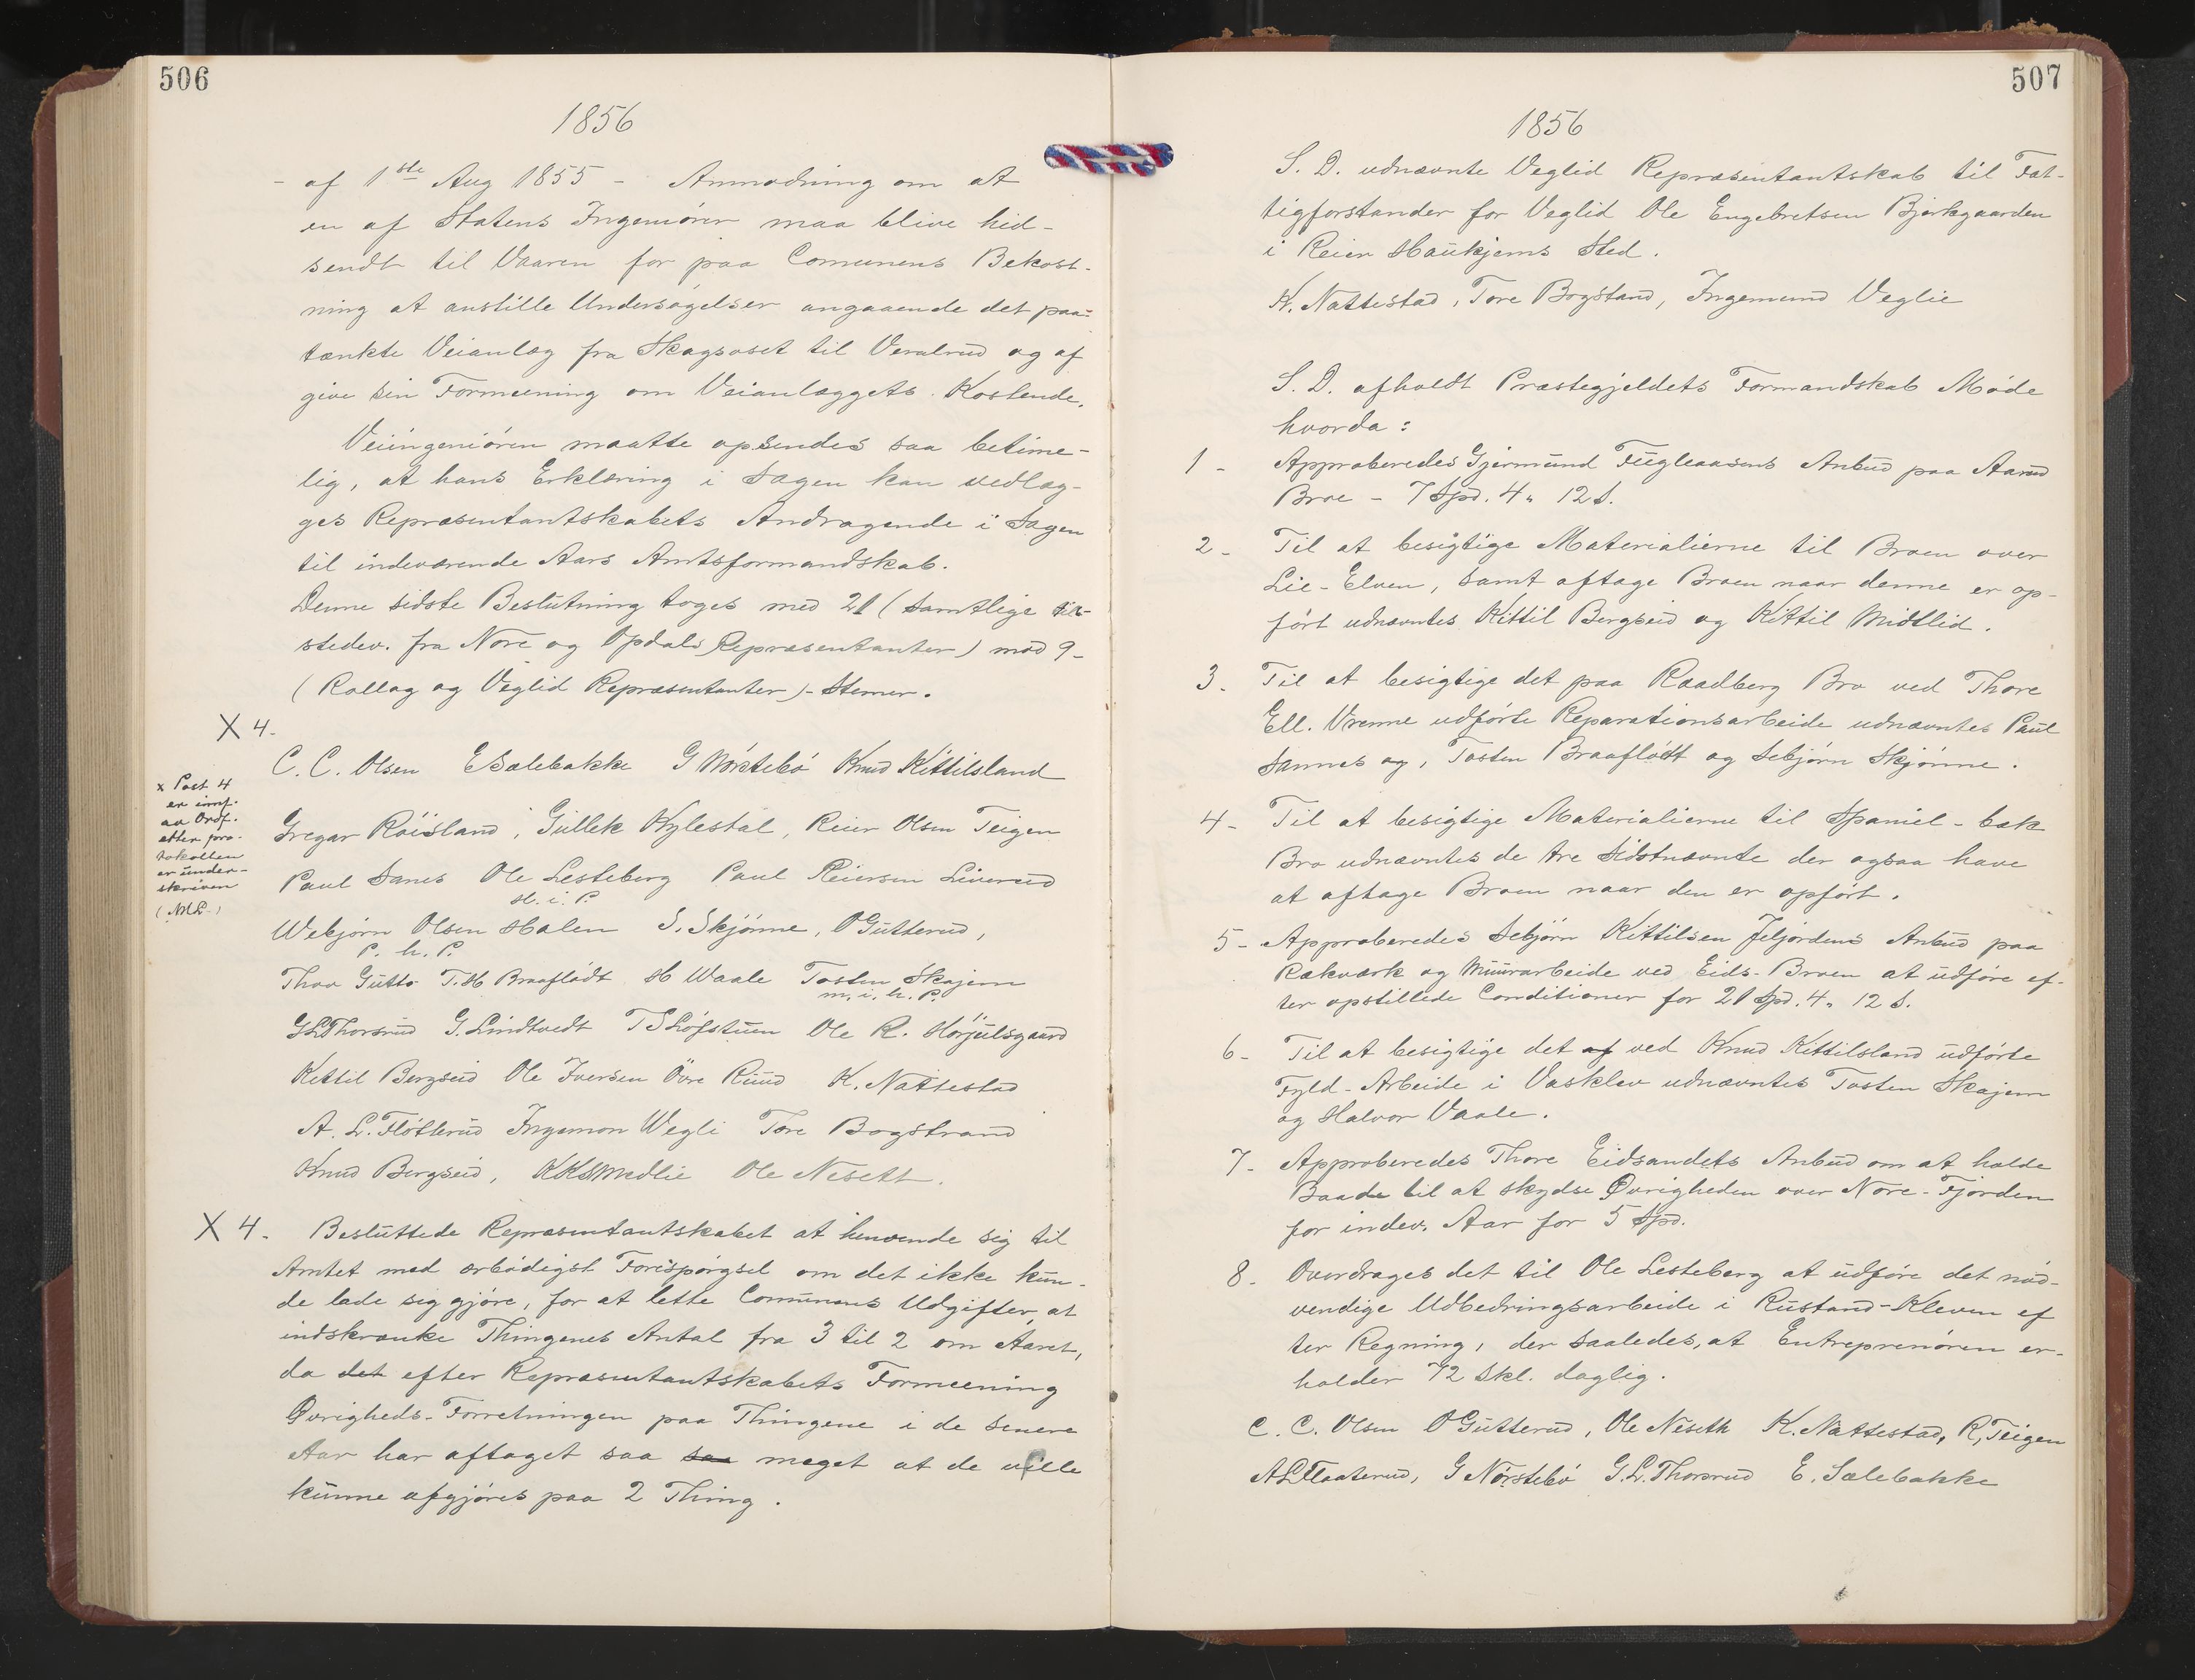 506
1856
- af 1ste Aug 1855 - Anmodning om at
en af Statens Ingeniörer maa blive hid-
sendt til Vaaren for paa Comunens Bekost-
ning at anstille Undersögelser angaaende det paa-
tænkte Veianlæg fra Skagsoset til Veralrud og af
give sin Formeening om Veianlæggets Kostende.
Veiingeniören maatte opsendes saa betime-
lig, at hans Erklæring i Sagen kan vedlæg-
ges Repræsentantskabets Andragende i Sagen
til indeværende Aars Amtsformandskab.
Denne sidste Beslutning toges med 21 (samtlige til-
stedev. fra Nore og Opdals Repræsentanter) mod 9-
(Rollag og Veglid Repræsentanter)- Stemer.
X 4.
C. C. Olsen ESælebakke G Nörstebö Knud Kittilsland
x Post 4
er innf.
av Ordf.
etter pro-
tokollen
er under-
skriven
(ML)
Gregar Röisland, Gullek Kylestal, Reier Olsen Teigen
Paul Sanes Ole Lesteberg Paul Reiersen Liverud
H. i. P.
Webjörn Olsen Halen S. Skjönne, OGutterud,
P. h. P.
Thov Gutto T.H Braaflödt H Waale Tosten Skajem
m. i. h. P.
GLThorsrud G. Lindtvedt TSLöfstuen Ole R. Hörjulsgaard
Kettil Bergseid Ole Iversen Övre Ruud K. Nattestad
A. L. Flötterud Ingemon Wegli Tore Bogstrand
Knud Bergseid, KKSMedlie Ole Nesett.
X 4. Besluttede Repræsentantskabet at henvende sig til
Amtet med ærbödigst Forespörgsel om det ikke kun-
de lade sig gjöre, for at lette Comunens Udgifter, at
indskrænke Thingenes Antal fra 3 til 2 om Aaret,
da det efter Repræsentantskabets Formeening
Øvrigheds-Forretningen paa Thingene i de senere
Aar har aftaget saa saa meget at de ville
kunne afgjöres paa 2 Thing.
507
1856
S. D. udnævnte Veglid Repræsentantskab til Fat-
tigforstander for Veglid Ole Engebretsen Bjerkgaarden
i Reier Haukjems Sted.
K. Nattestad, Tore Bogstand, Ingemund Veglie
S. D. afholdt Præstegjeldets Formandskab Möde
hvorda:
1 - Approberedes Gjermund Fugleaasens Anbud paa Aarud
Broe - 7 Spd. 4" 12 S.
2 - Til at besigtige Materialierne til Broen over
Lie-Elven, samt aftage Broen naar denne er op-
fört udnævntes Kittil Bergseid og Kittil Midtlid.
3. Til at besigtige det paa Raadberg Bro ved Thore
Ell. Vrenne udförte Reparationsarbeide udnævntes Paul
Sannes og, Tosten Braaflödt og Sebjörn Skjönne.
4 - Til at besigtige Materialierne til Spaniel-bæk
Bro udnævntes de tre Sidstnævnte der ogsaa have
at aftage Broen naar den er opfört.
5 - Approberedes Sebjörn Kittilsen Jeljordens Anbud paa
Rækværk og Muurarbeide ved Eids-Broen at udföre ef-
ter opstillede Conditioner for 21 Spd. 4" 12 S.
6 - Til at besigtige det af ved Knud Kittilsland udförte
Fyld-Arbeide i Vasklev udnævntes Tosten Skajem
og Halvor Vaale.
7 - Approberedes Thore Eidsandets Anbud om at holde
Baade til at skydse Øvrigheden over Nore-Fjorden
for indev. Aar for 5 Spd.
8. Overdrages det til Ole Lesteberg at udföre det nöd-
vendige Udbedringsarbeide i Rustand-Kleven ef
ter Regning, der saaledes, at Entreprenören er-
holder 72 Skl. daglig.
C. C. Olsen OGutterud, Ole Neseth K. Nattestad, R, Teigen
ALFlaaterud, G Nörstebö G.L. Thorsrud E. Sælebakke